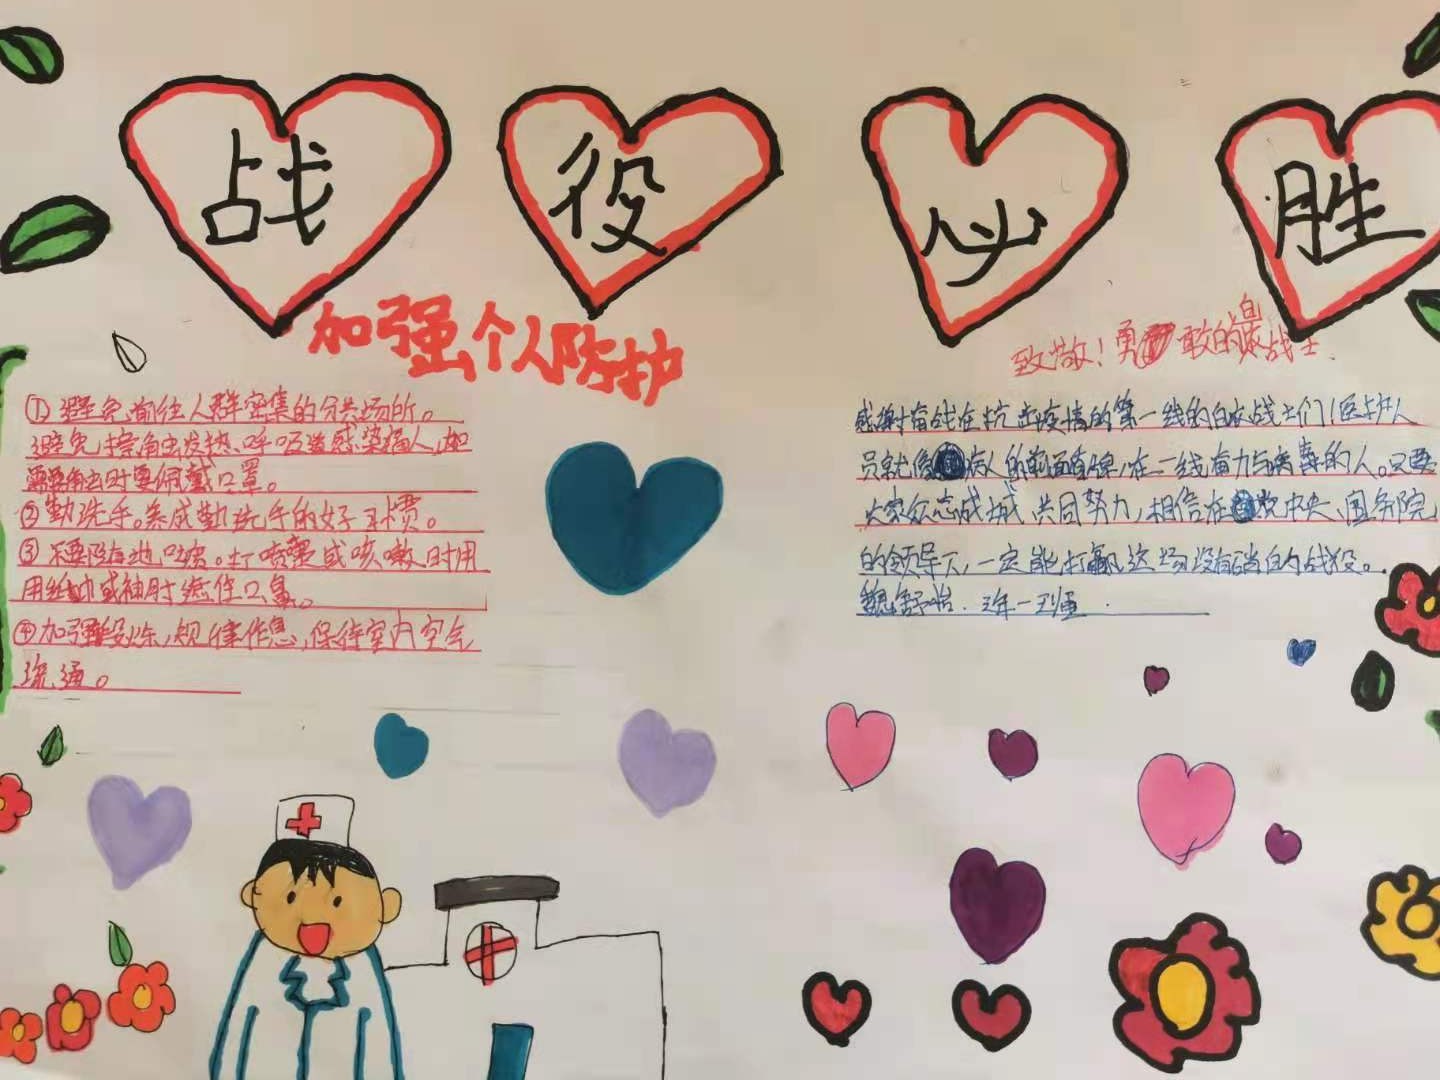 战役必胜
加强个人防护
①避免前往人群密集的公共场所。
避免接触发热呼吸道感染病人,如
需要触时要佩戴口罩。
②勤洗手。养成勤洗手的好习惯。
③不要随地吐痰。打喷嚏或咳嗽时用
用纸巾或袖肘遮住口鼻。
④加强锻炼,规律作息,保持室内空气
流通。
致敬!勇敢的最战士
感谢奋战在抗击疫情的第一线的白衣战士们!医护人
员就像病人的前面,在一线奋力与病毒的人。只要
大家众志成城,共同努力,相信在党中央、国务院
的领导下,一定能打赢这场没有硝白的战役。
三年一班